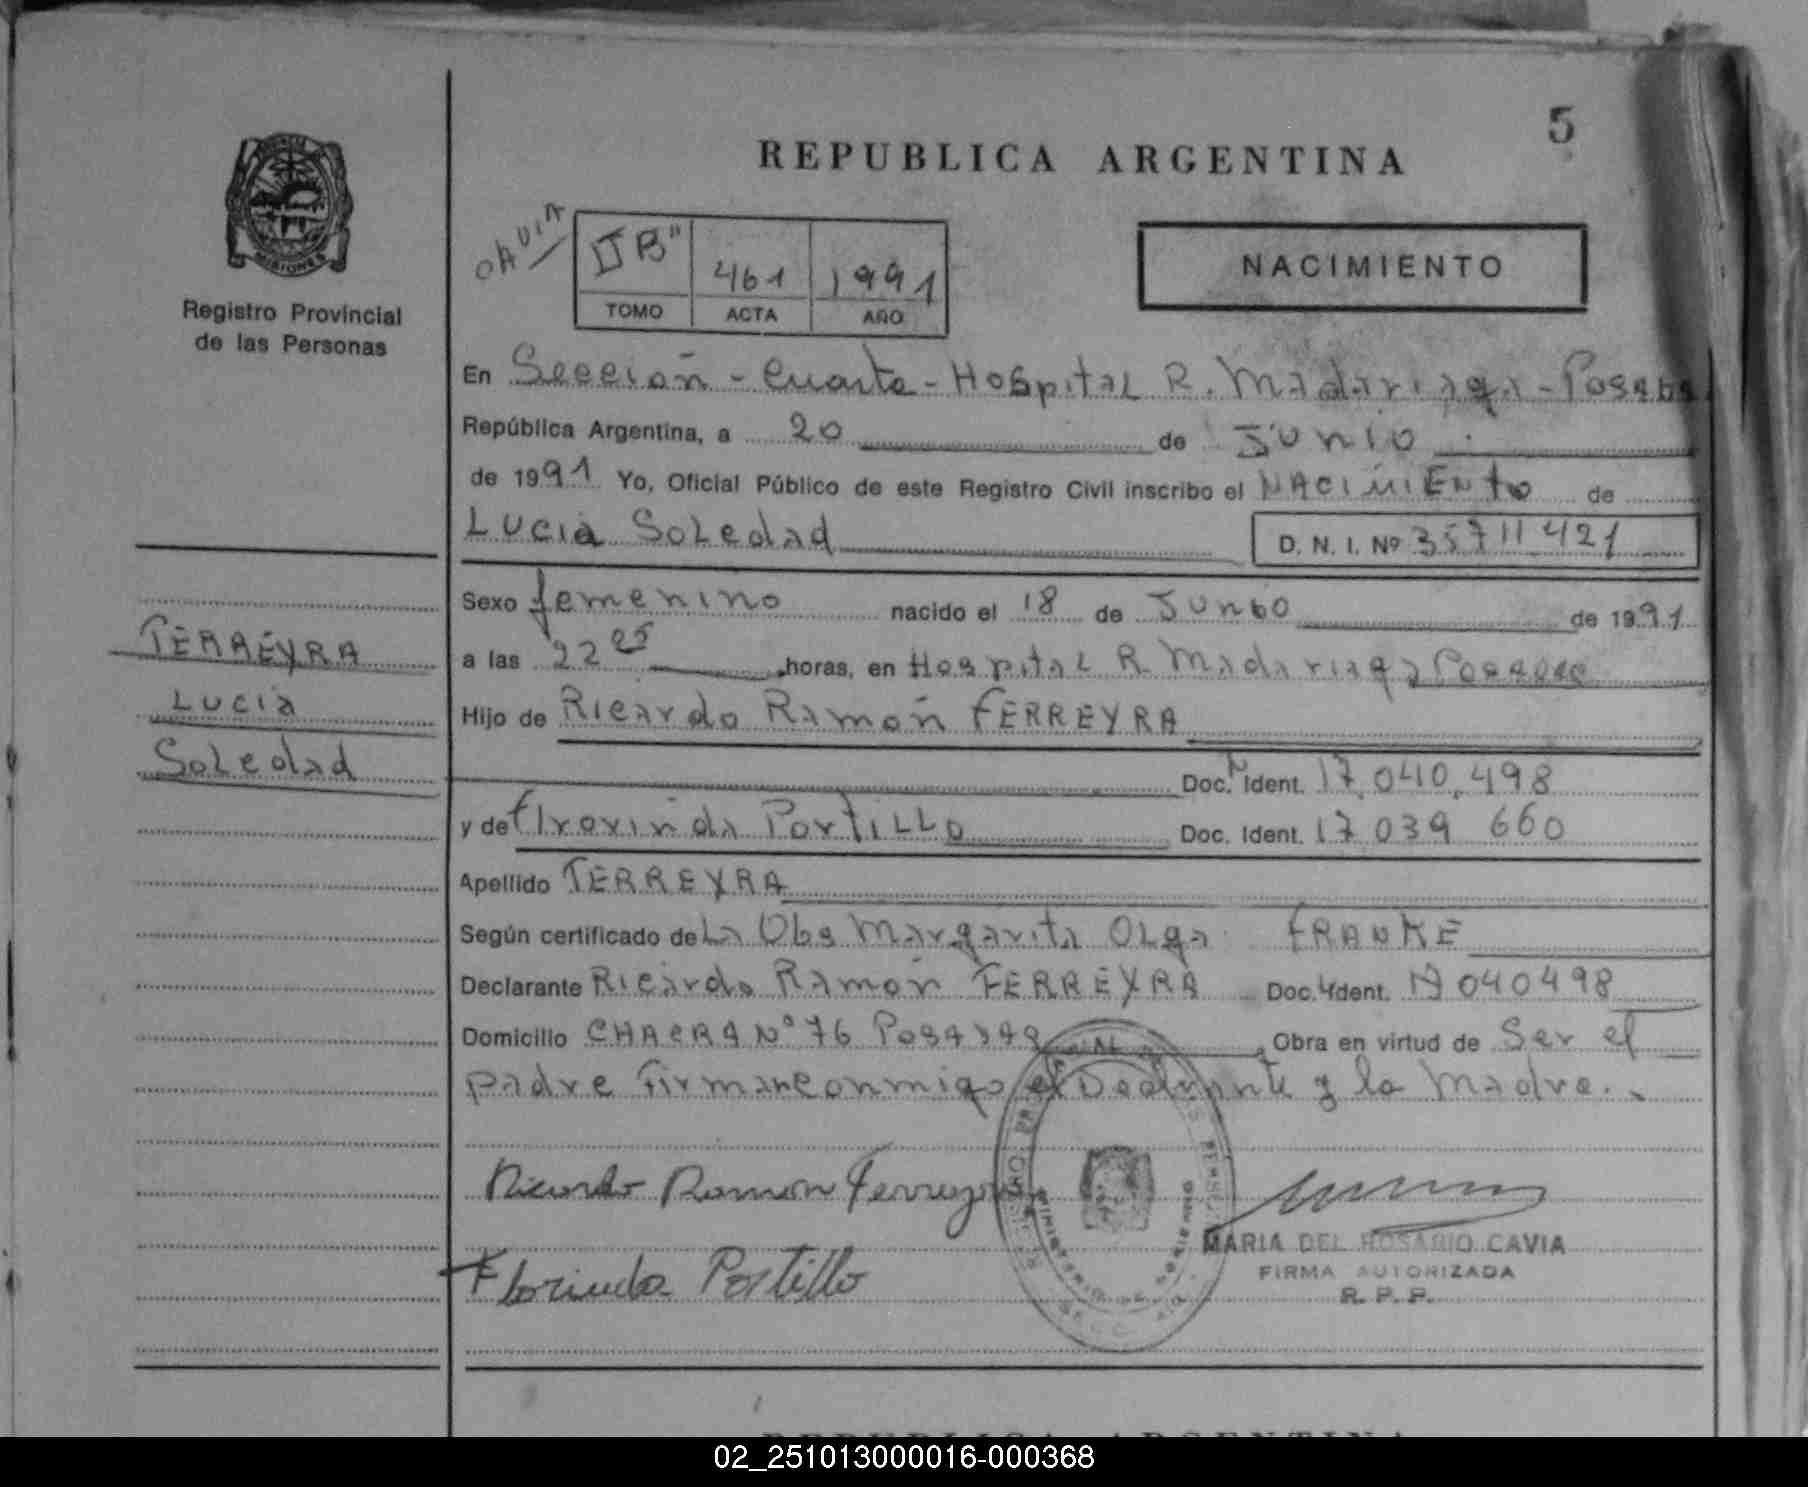 5
REPUBLICA ARGENTINA
MISIONES
Registro Provincial
de las Personas
II B" 461 1991
TOMO ACTA AÑO
NACIMIENTO
En Sección - Cuarta - Hospital R. Madariaga - Posadas
República Argentina, a 20 de Junio
de 1991 Yo, Oficial Público de este Registro Civil inscribo el NACIMIENto de
LUCIA SOLedad D. N. I. Nº 35711421
Sexo femenino nacido el 18 de Junio de 1991
a las 22 25 horas, en Hospital R. Madariaga Posadas
Hijo de Ricardo Ramón FERREYRA
Doc. Ident. 17.040.498
y de Florinda PortiLLo Doc. Ident. 17 039 660
Apellido FERREYRA
Según certificado de La Obs Margarita Olga FRANKE
Declarante Ricardo Ramón FERREYRA Doc. Ident. 17 040498
Domicilio CHACRA Nº 76 Posadas Obra en virtud de Ser el
padre Firman conmigo el Declarante y la Madre.
Ricardo Ramon Ferreyra
Florinda Portillo
MARIA DEL ROSARIO CAVIA
FIRMA AUTORIZADA
R. P. P.
FERREYRA
LUCIA
SoLedad
REPUBLICA ARGENTINA
02_251013000016-000368